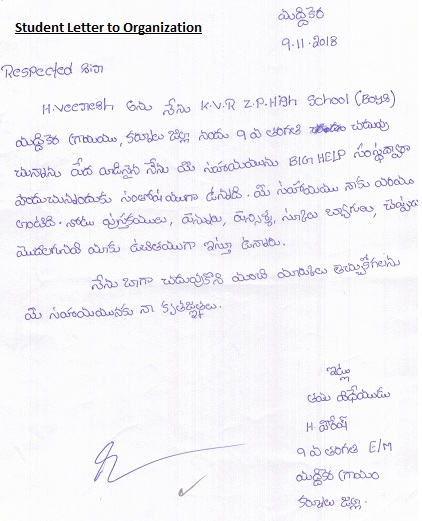 Student Letter to Organization
మద్దికెర
9.11.2018
Respected సార్
H.Veeresh అను నేను K.V.R Z.P.High School (Boys)
మద్దికెర గ్రామము, కర్నూలు జిల్లా నందు 9 వ తరగతి చదువు
చున్నాను పేద వాడినైన నేను మీ సహాయమును BIG HELP సంస్థ ద్వారా
పొందుచున్నందుకు సంతోషముగా ఉన్నది. మీ సహాయము నాకు వరము
లాంటిది. నోటు పుస్తకములు, పెన్నులు, పెన్సిళ్ళు, స్కూలు బ్యాగులు, చెప్పులు
మొదలగునవి మాకు ఉచితముగా ఇస్తూ ఉన్నారు.
నేను బాగా చదువుకొని మంచి మార్కులు తెచ్చుకోగలను
మీ సహాయమునకు నా కృతజ్ఞతలు.
ఇట్లు
తమ విధేయుడు
H. వీరేష్
9 వ తరగతి E/M
మద్దికెర గ్రామం
కర్నూలు జిల్లా.